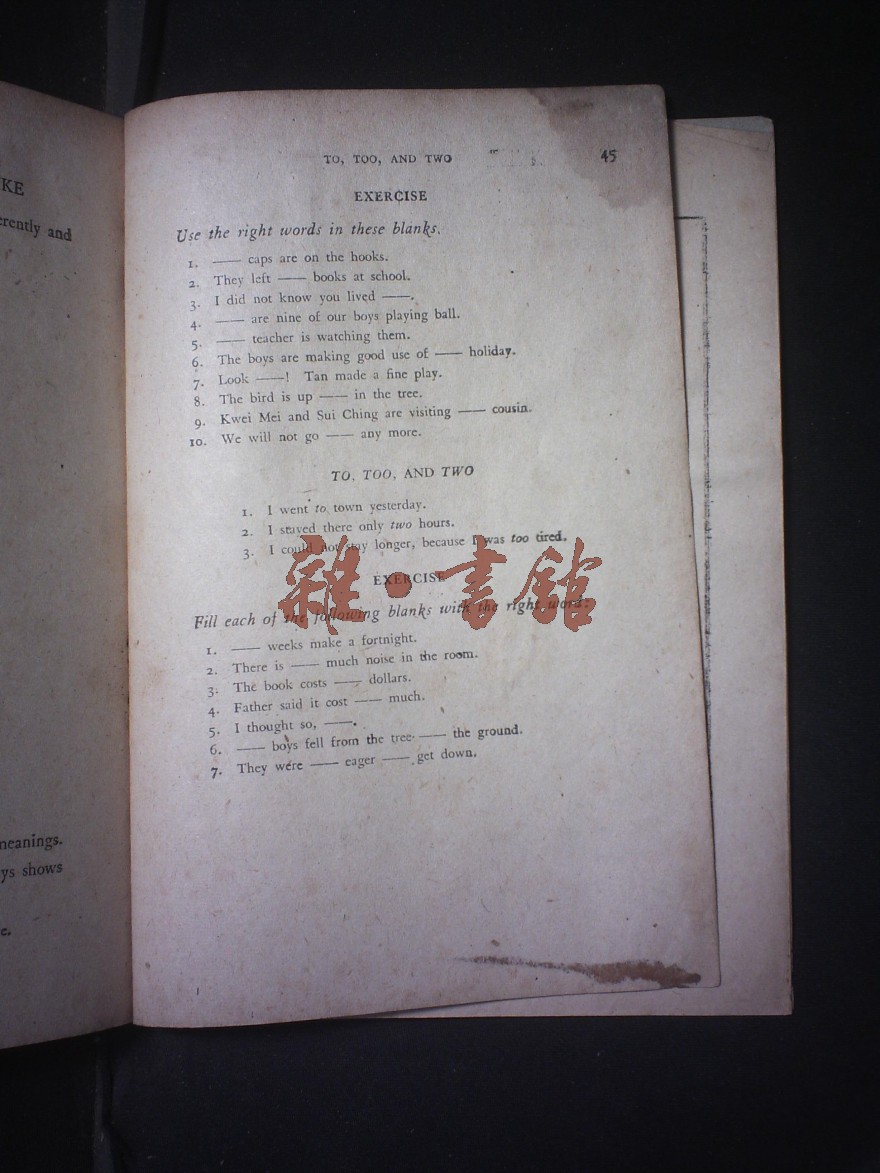 KE
erently and
meanings.
ys shows
TO, TOO, AND TWO 45
EXERCISE
Use the right words in these blanks.
1. —— caps are on the hooks.
2. They left —— books at school.
3. I did not know you lived ——.
4. —— are nine of our boys playing ball.
5. —— teacher is watching them.
6. The boys are making good use of —— holiday.
7. Look ——! Tan made a fine play.
8. The bird is up —— in the tree.
9. Kwei Mei and Sui Ching are visiting —— cousin.
10. We will not go —— any more.
TO, TOO, AND TWO
1. I went to town yesterday.
2. I stayed there only two hours.
3. I could not stay longer, because I was too tired.
雜·書館
EXERCISE
Fill each of the following blanks with the right word:
1. —— weeks make a fortnight.
2. There is —— much noise in the room.
3. The book costs —— dollars.
4. Father said it cost —— much.
5. I thought so, ——.
6. —— boys fell from the tree —— the ground.
7. They were —— eager —— get down.